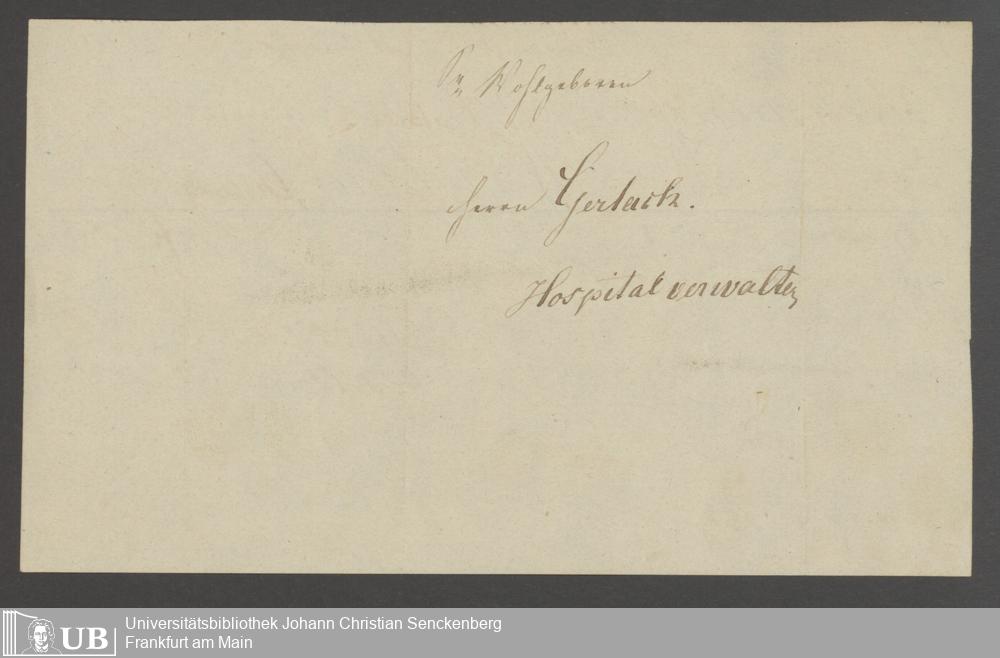 Sr Wohlgeboren
Herrn Gerlach.
Hospitalverwalter
Universitätsbibliothek Johann Christian Senckenberg
Frankfurt am Main
UB